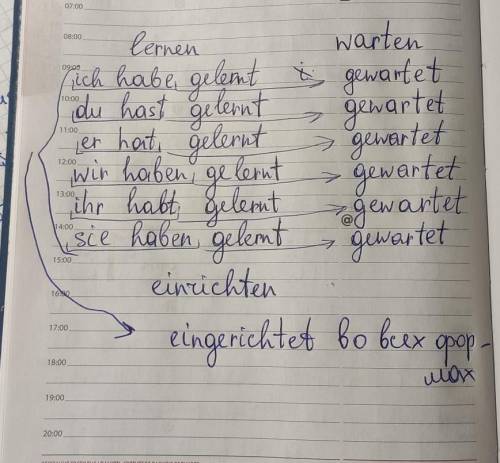 07:00
08:00
lernen warten
09:00 ich habe gelernt i. gewartet
10:00 du hast gelernt gewartet
11:00 er hat gelernt gewartet
12:00 wir haben gelernt gewartet
13:00 ihr habt gelernt gewartet
14:00 sie haben gelernt @ gewartet
15:00
einrichten
16:00
17:00 eingerichtet во всех фор-
18:00 мах
19:00
20:00